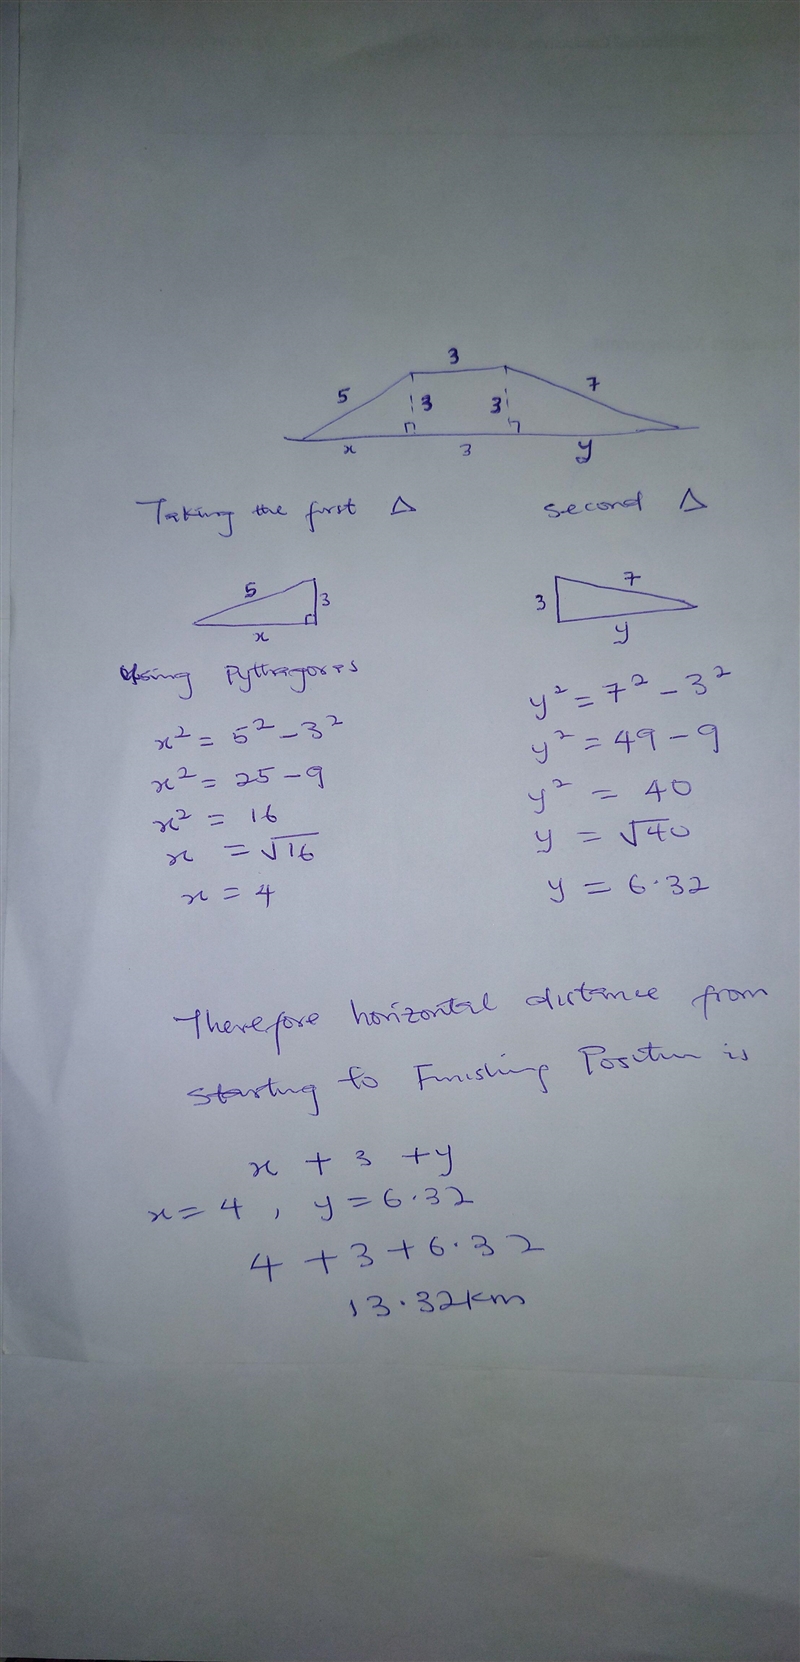 3
5 3 3 7
x 3 y
Taking the first Δ second Δ
5 3 3 7
x y
Using Pythagoras
x² = 5² - 3² y² = 7² - 3²
x² = 25 - 9 y² = 49 - 9
x² = 16 y² = 40
x = √16 y = √40
x = 4 y = 6.32
Therefore horizontal distance from
starting to Finishing Position is
x + 3 + y
x = 4 , y = 6.32
4 + 3 + 6.32
13.32km